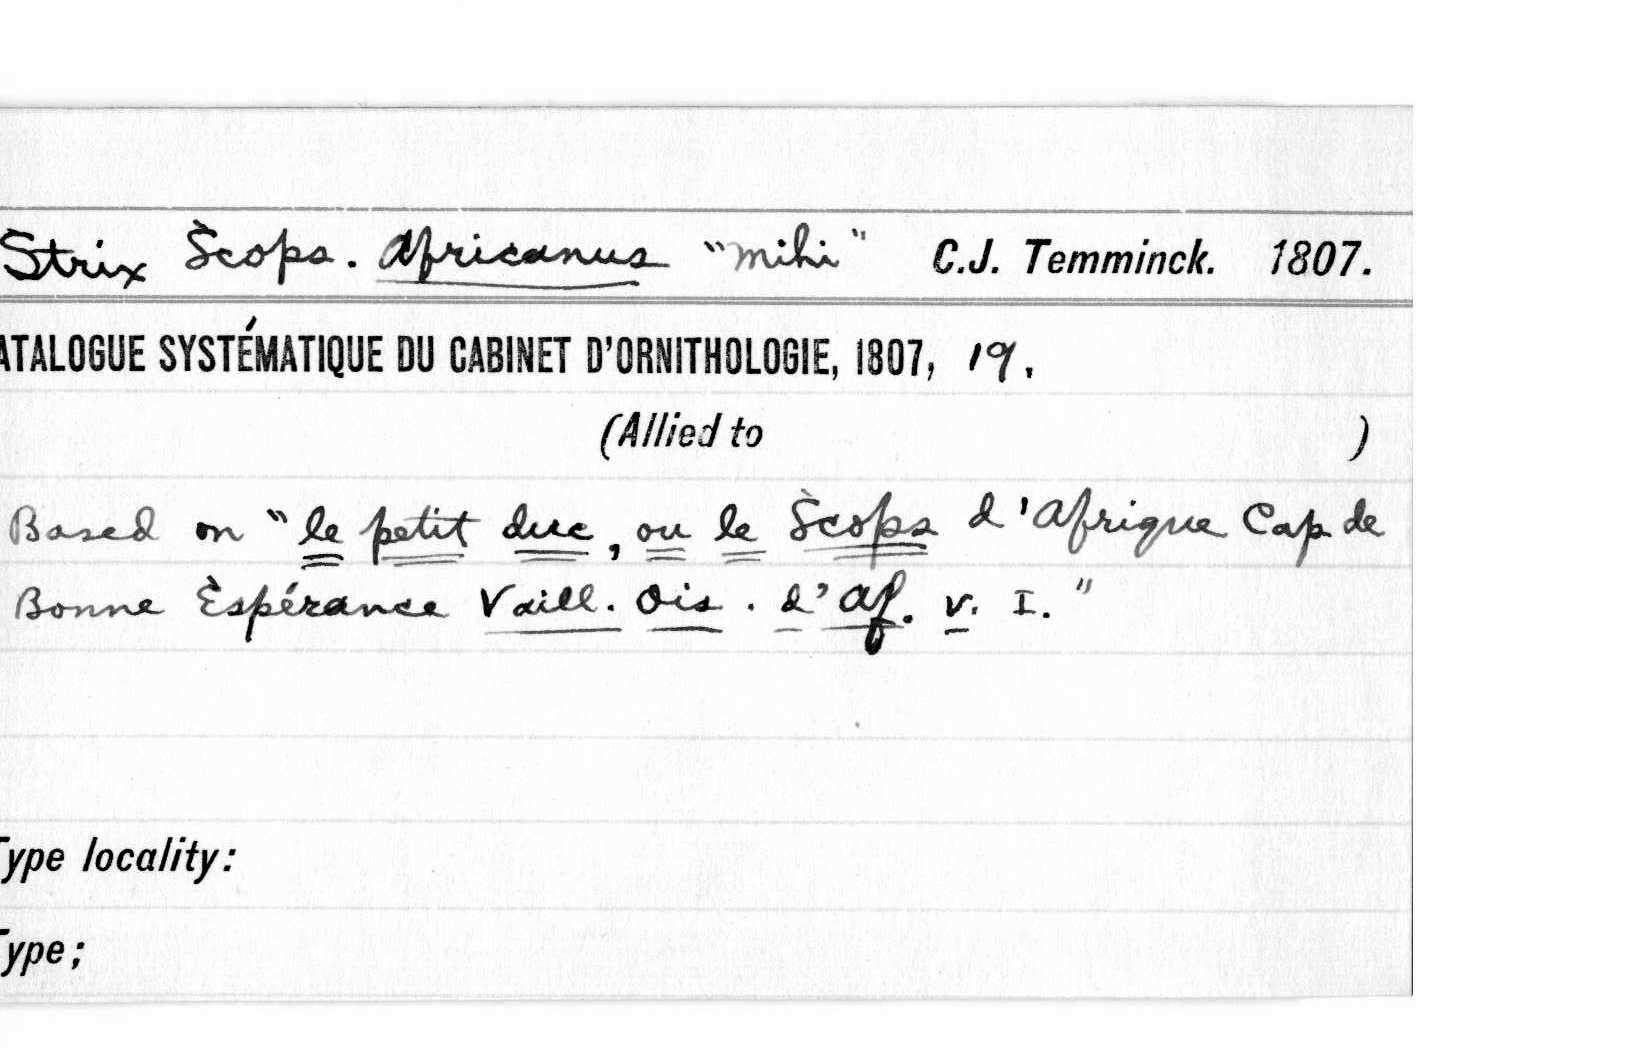 Strix Scops. Africanus "mihi" C.J. Temminck. 1807.
ATALOGUE SYSTÉMATIQUE DU CABINET D'ORNITHOLOGIE, 1807, 19.
(Allied to )
Based on "le petit duc, ou le Scops d'Afrique Cap de
Bonne Espérance Vaill. Ois. d'Af. v. I."
Type locality:
Type;